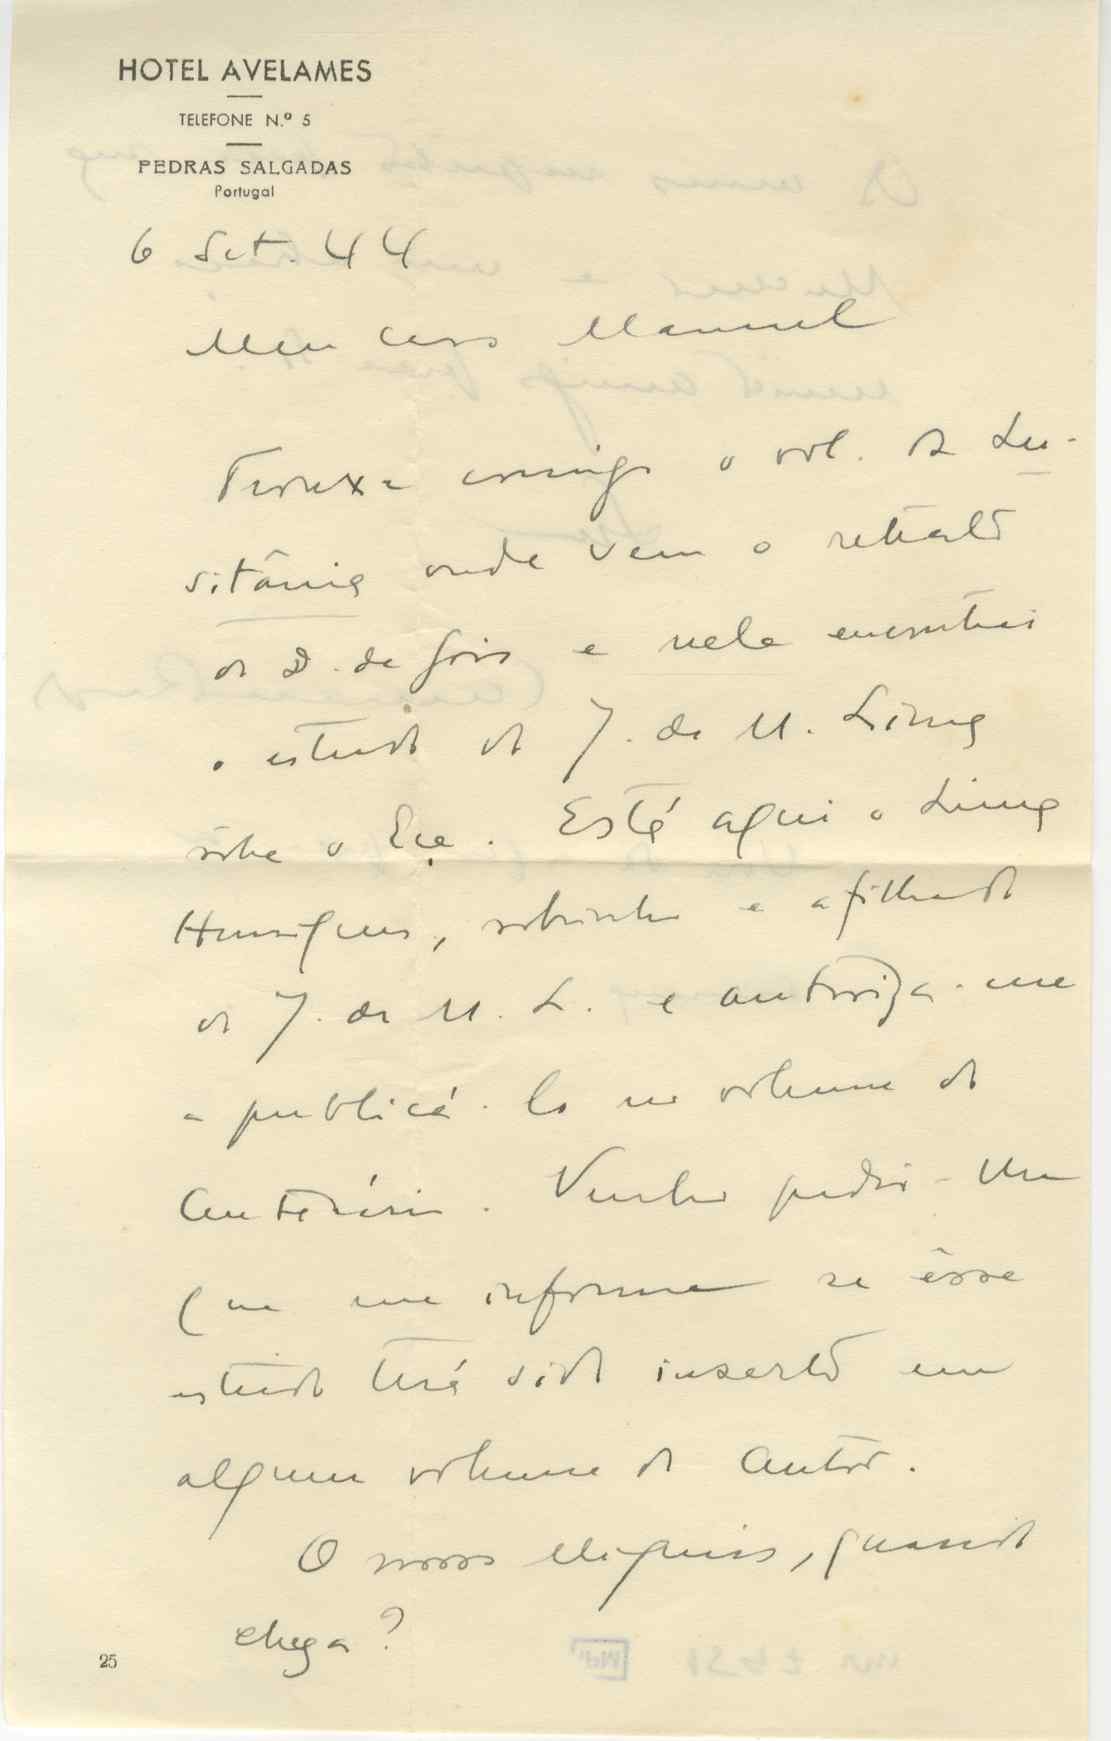 HOTEL AVELAMES
TELEFONE N.º 5
PEDRAS SALGADAS
Portugal
6 Set. 44
Meu caro Manuel
Trouxe comigo o vol. da Lu-
sitânia onde vem o retrato
do D. de Gois e nele encontrei
o estudo do J. de M. Lima
sobre o Eça. Está aqui o Lima
Henriques, sobrinho e afilhado
do J. de M. L. e autoriza-me
a publicá-lo no volume do
Centenário. Venho pedir-lhe
que me informe se êsse
estudo terá sido inserto em
algum volume do autor.
O nosso Diques, quando
chega?
25